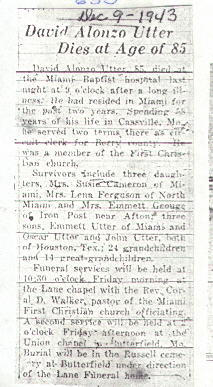 Dec 9-1943
David Alonzo Utter
Dies at Age of 85
David Alonzo Utter, 85, died at
the Miami Baptist hospital last
night at 9 o'clock after a long ill-
ness. He had resided in Miami for
the past two years. Spending 55
years of his life in Cassville, Mo.,
he served two terms there as cir-
cuit clerk for Berry county. He
was a member of the First Chris-
tian church.
Survivors include three daugh-
ters, Mrs. Susie Cameron of Mi-
ami, Mrs. Lena Ferguson of North
Miami and Mrs. Emmett George
of Iron Post near Afton; three
sons, Emmett Utter of Miami and
Oscar Utter and John Utter, both
of Houston, Tex.; 24 grandchildren
and 14 great-grandchildren.
Funeral services will be held at
10:30 o'clock Friday morning
the Lane chapel with the Rev. Cor-
al D. Walker, pastor of the Miami
First Christian church officiating.
A second service will be held at
o'clock Friday afternoon at the
Union chapel Butterfield, Mo.
Burial will be in the Russell ceme-
ery at Butterfield under direction
of the Lane Funeral